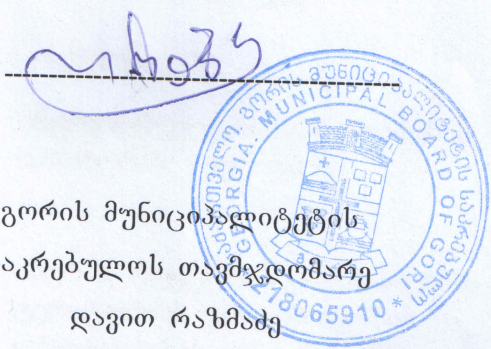 საქართველო. გორის მუნიციპალიტეტის საკრებულო
GEORGIA. MUNICIPAL BOARD OF GORI
* 218065910 *
გორის მუნიციპალიტეტის
აკრებულოს თავმჯდომარე
დავით რაზმაძე